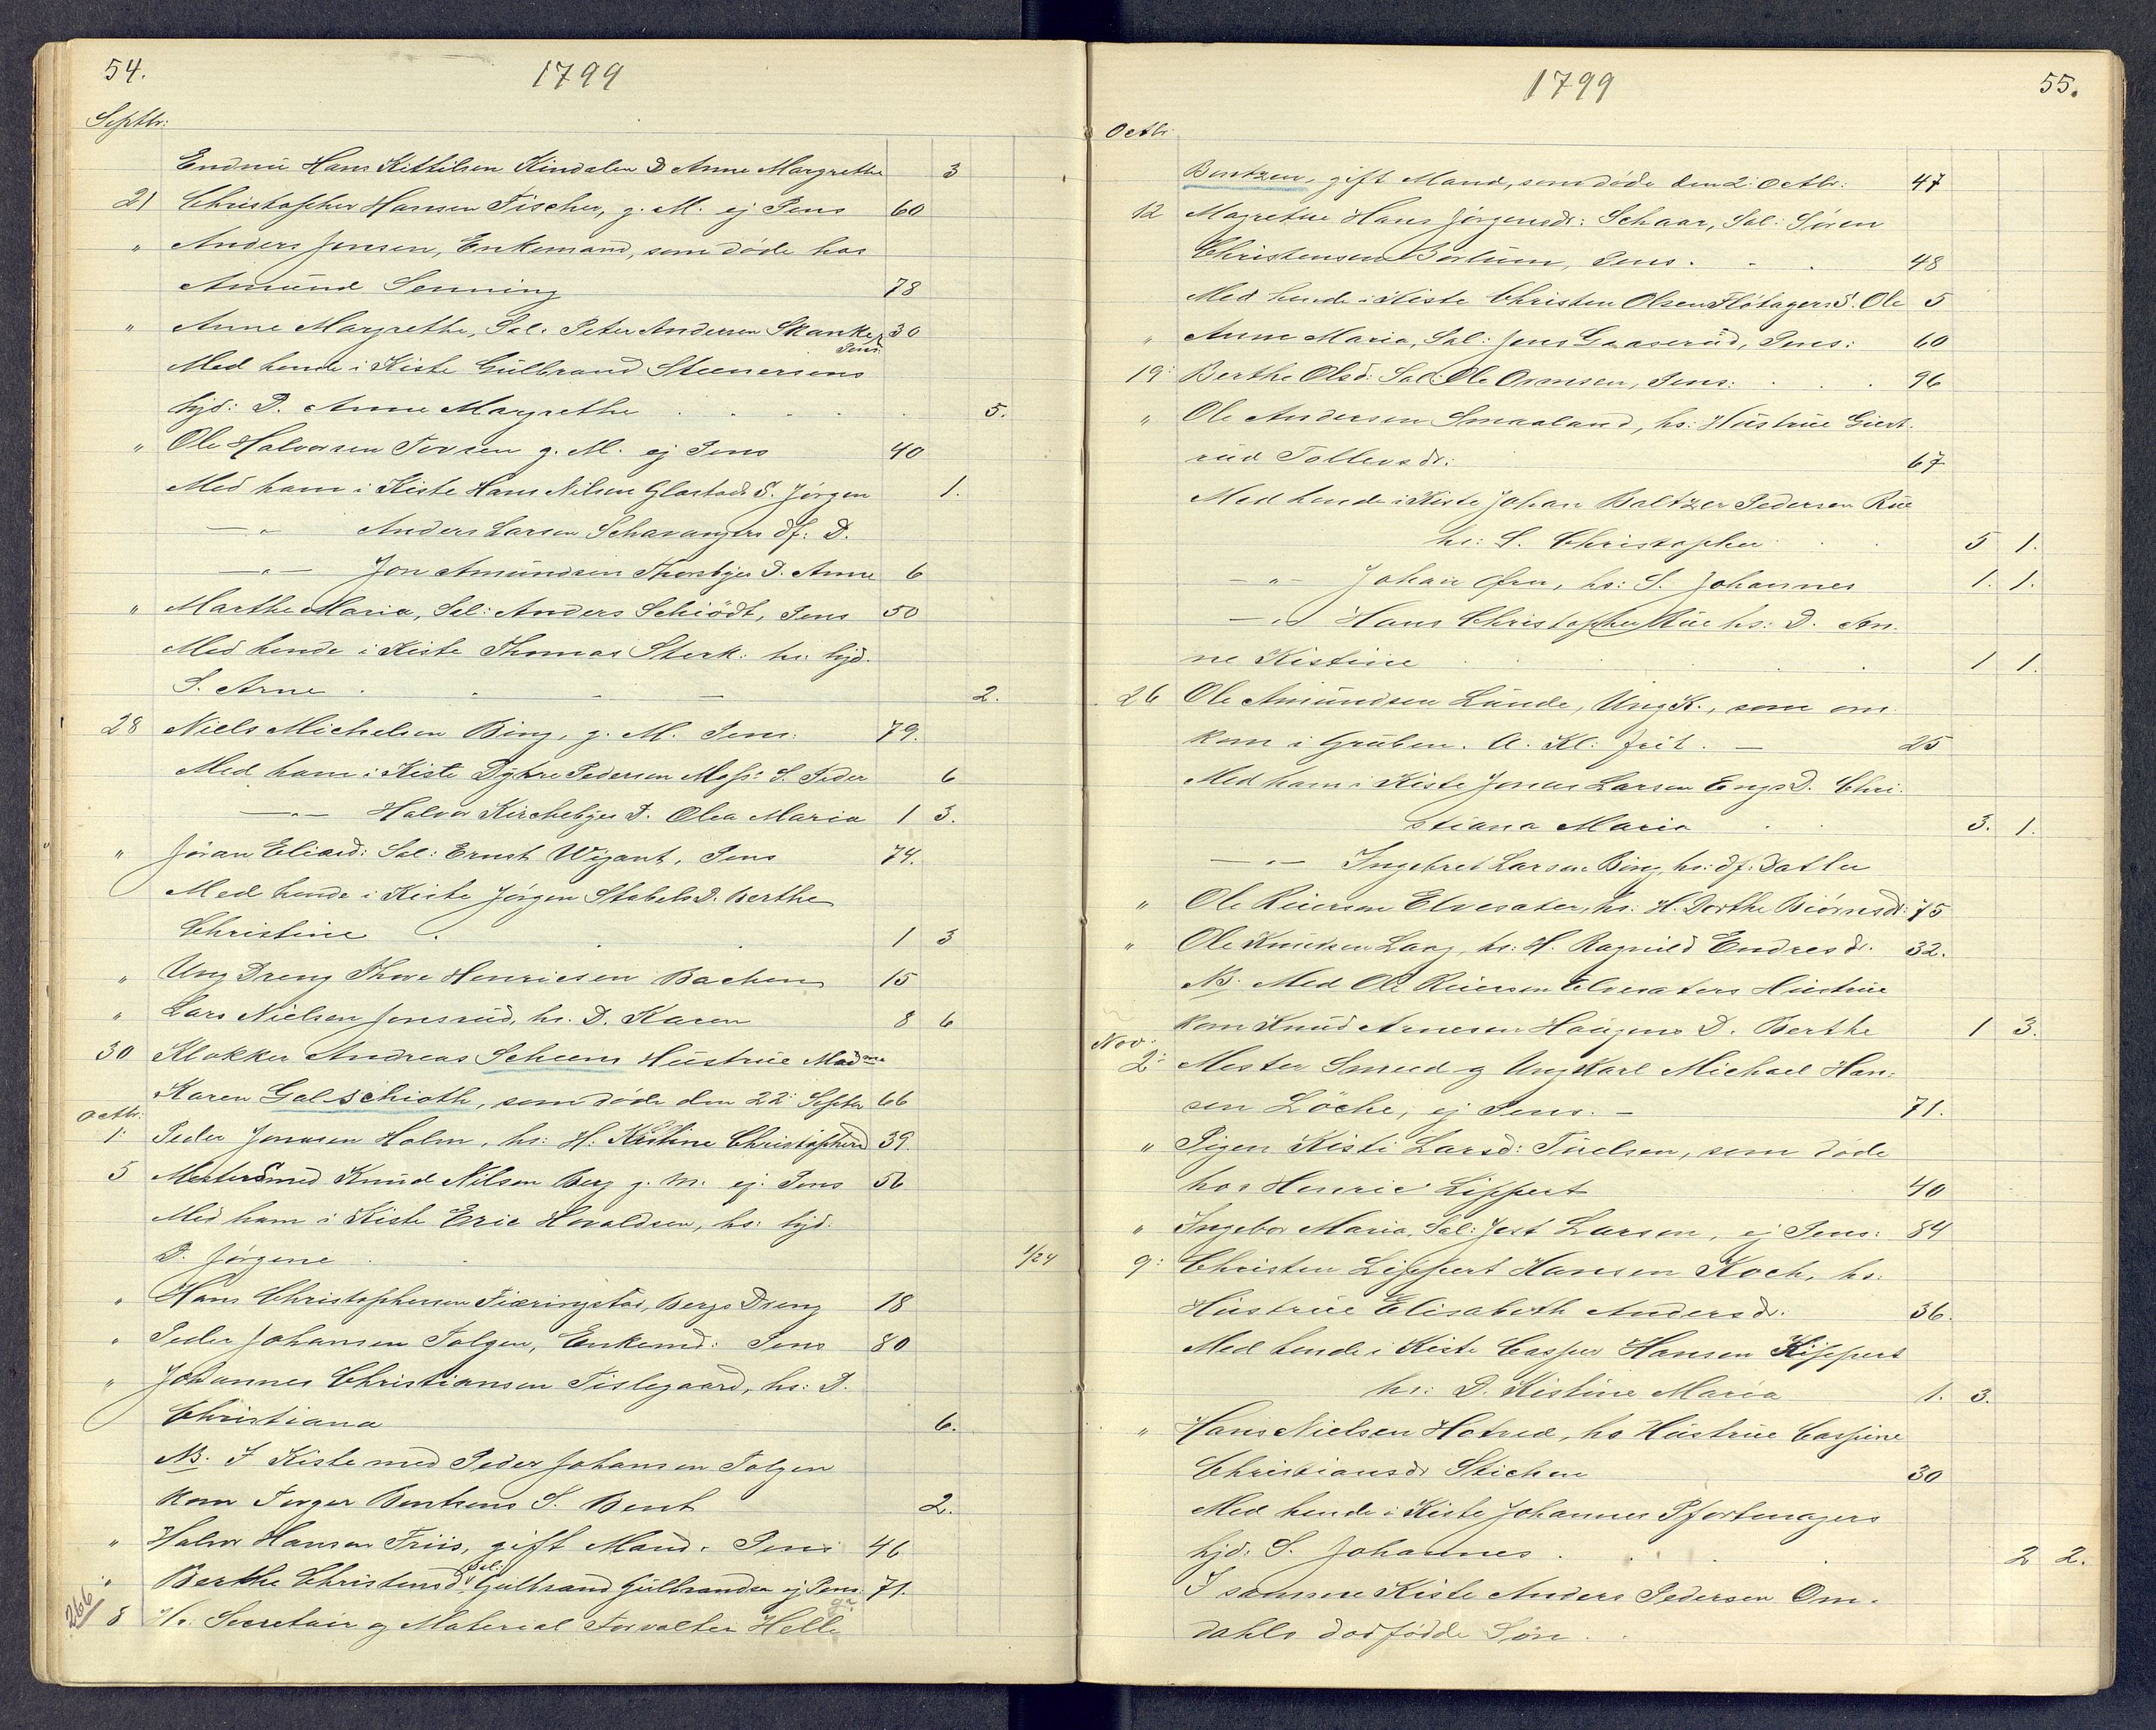 54.
1799
Septbr:
Endnu Hans Kittilsen Kindalen D Anne Margrethe 3
21 Christopher Hansen Fischer, g. M. ej Pens 60
" Anders Jensen, Enkemand, som døde hos
Amund Senning 78
" Anne Margrethe, Sal. Peter Andersen Skanke, 30
Pens:
Med hende i Kiste Gulbrand Steenersens
hjd: D. Anne Margrethe 5.
" Ole Halvorsen Fossen g. M. ej Pens 40
Med ham i Kiste Hans Nilsen Glastads S. Jörgen 1.
— " Anders Larsen Schavangers df: D.
— " — Jon Amundsen Thorsbyes D. Anne 6
" Marthe Maria, Sal: Anders Schiödt, Pens 50
Med hende i Kiste Thomas Sterk: hs. hjd.
S. Arne 2.
28 Niels Michelsen Bing, g. M. Pens: 79.
Med ham i Kiste Dyhre Pedersen Moss: S. Peder 6
— " — Halvor Kirchebyes D. Olea Maria 1 3.
" Jöran Eliasd: Sal: Ernst Wigant, Pens 74.
Med hende i Kiste Jörgen Stabels D. Berthe
Christine 1 3
" Ung Dreng Thore Henricsen Bachen 15
" Lars Nielsen Jonsrud, hs. D. Karen 8 6
30 Klokker Andreas Scheens Hustrue Madme
Karen Galschioth, som døde den 22: Septbr 66
Octbr:
1: Peder Jonasen Holm, hs: H: Kistine Christophersd 39.
5 Mestersmed Knud Nilsen Berg g. M. ej. Pens 56
Med ham i Kiste Eric Havaldsen, hs: hjd:
D. Jörgene 1/24
" Hans Christophersen Fiæringstad, Bergs Dreng 18
" Peder Johansen Tolgen, Enkemd: Pens 80
" Johannes Christiansen Tislegaard, hs: D.
Christiana 6.
NB. I Kiste med Peder Johansen Tolgen
kom Torger Bentsens S. Bent 2.
" Halvor Hansen Friis, gift Mand. Pens 46
" Berthe Christensd. Sal: Gulbrand Gulbrandsen ej Pens: 71.
8 Hr. Secretair og Material Forvalter Helle
266
1799
55.
Octbr
Bentzen, gift Mand, som døde den 2: Octbr: 47
12 Magrethe Hans Jörgensdr: Schaar, Sal: Sören
Christensen Bortum, Pens. 48
Med hende i Kiste Christen Olsen Flötagers S. Ole 5
" Anne Maria, Sal: Jens Gaaserud, Pens: 60
19: Berthe Olsd: Sal: Ole Osmsen, Pens: 96
" Ole Andersen Smaaland, hs: Hustrue Giert-
rud Tollevsdr: 67
Med hende i Kiste Johan Baltzer Pedersen Rue
hs: S. Christopher 5 1.
— " — Johan Örn, hs: S. Johannes 1. 1.
— " Hans Christopher Rue hs: D. An-
ne Kistine 1 1.
26 Ole Amundsen Lunde, Ung K., som om-
kom i Gruben. A. Kl: frit. — 25
Med ham i Kiste Jonas Larsen Engs D. Chri-
stiana Maria 3. 1.
— " — Ingebret Larsen Bing, hs: df: Datter
" Ole Reiersen Elvesater, hs: H. Dorthe Biörnsdr: 75
" Ole Knudsen Laag, hs: H. Ragnild Endresdr. 32.
NB. Med Ole Reiersen Elvesaters Hustrue
kom Knud Arnesen Haugens D. Berthe 1 3.
Nov:
2: Mester Smed og Ung Karl Michael Han-
sen Löche, ej Pens. — 71.
" Pigen Kisti Larsd: Tuelsen, som döde
hos Henric Lippert 40
" Ingebor Maria, Sal: Jost Larsen, ej Pens: 84
9: Christen Lippert Hansen Koch, hs:
Hustrue Elisabeth Andersdr. 36.
Med hende i Kiste Casper Hansen Kippers
hs: D. Kistine Maria 1. 3.
" Hans Nielsen Hotved, hs Hustrue Caspine
Christiansdr Stichen 30
Med hende i Kiste Johannes Pfortmagers
hjd: S. Johannes 2 2.
I samme Kiste Anders Pedersen Om-
dahls dødfødde Søn.